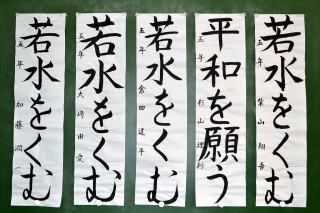 若水をくむ
五年 柴山翔吾
平和を願う
五年 杉山
若水をくむ
五年 倉田建平
若水をくむ
五年 大崎由愛
若水をくむ
五年 加藤潤